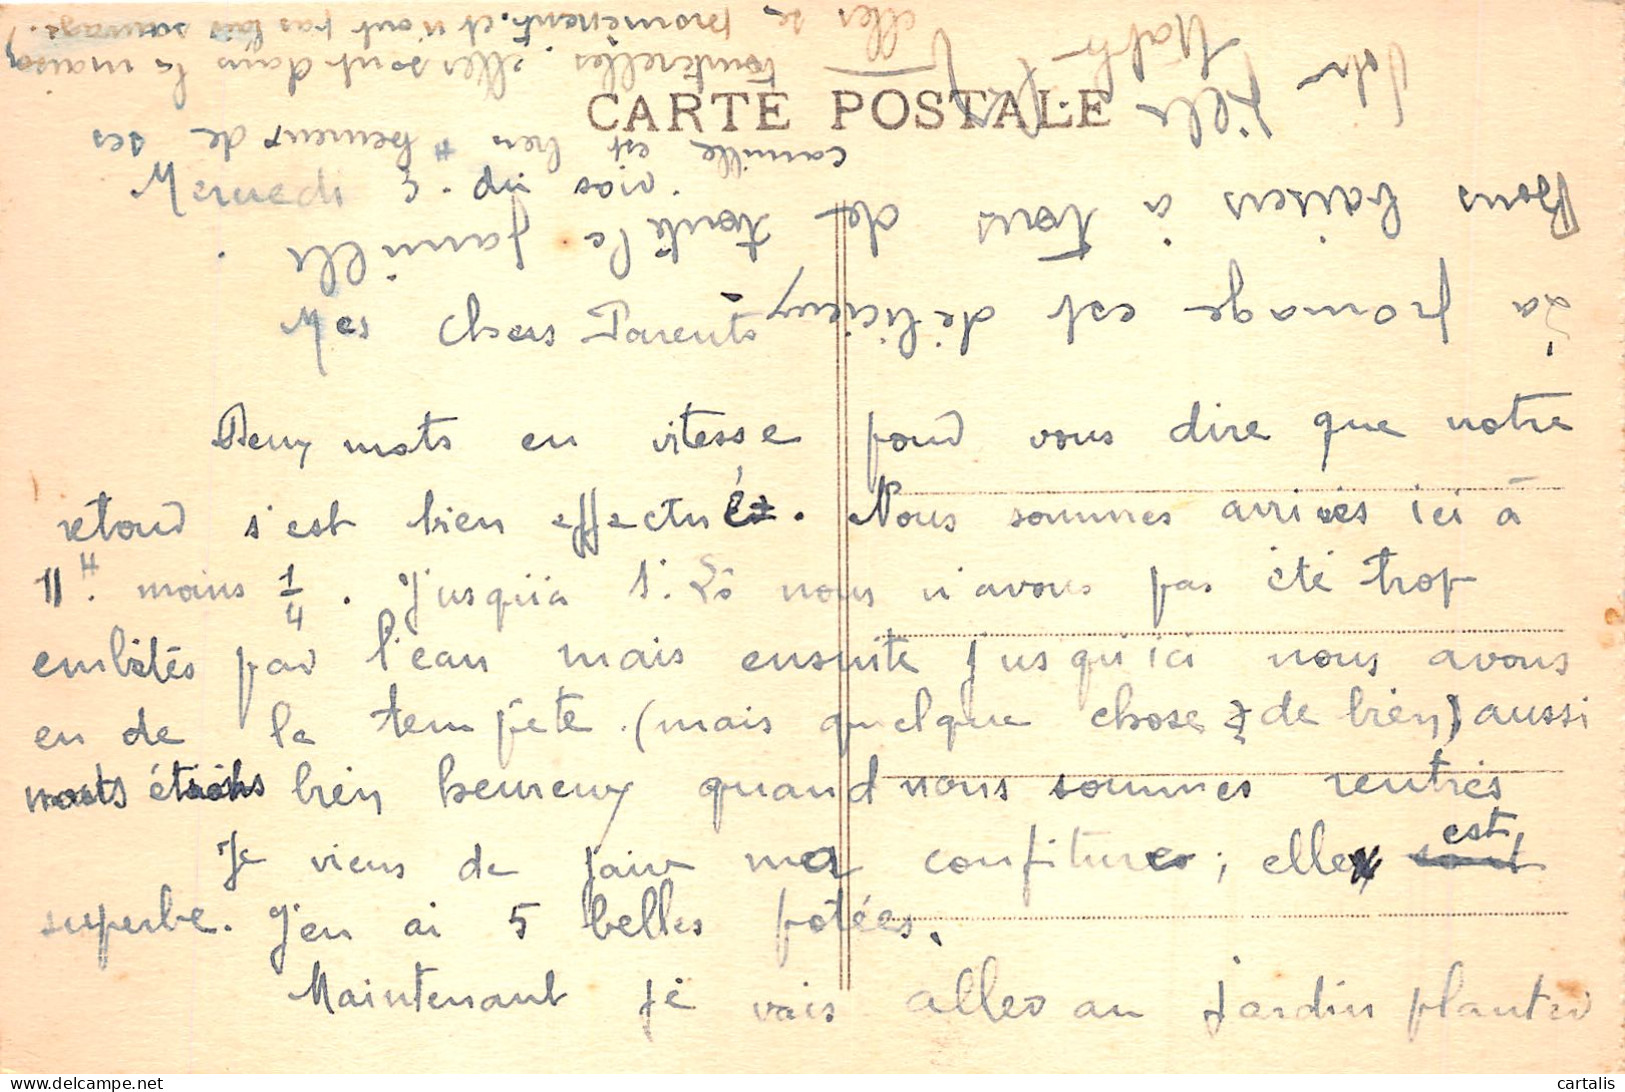 CARTE POSTALE
Mercredi 3. du soir.
Mes chers Parents
Deux mots en vitesse pour vous dire que notre
retour s'est bien effectué. Nous sommes arrivés ici à
11H. moins 1/4. Jusqu'à St. Lô nous n'avons pas été trop
embêtés par l'eau mais ensuite jusqu'ici nous avons
eu de la tempête. (mais quelque chose de bien) aussi
nous étions bien heureux quand nous sommes rentrés
Je viens de faire ma confiture; elle est
superbe. J'en ai 5 belles potées.
Maintenant je vais aller au jardin planter
La fromage est délicieux
Bons baisers à tous de toute la famille.
Votre fille
camille est bien heureux de ses
tourterelles, elles sont dans la maison
elles se promènent, et n'ont pas l'air sauvage.)
cartalis